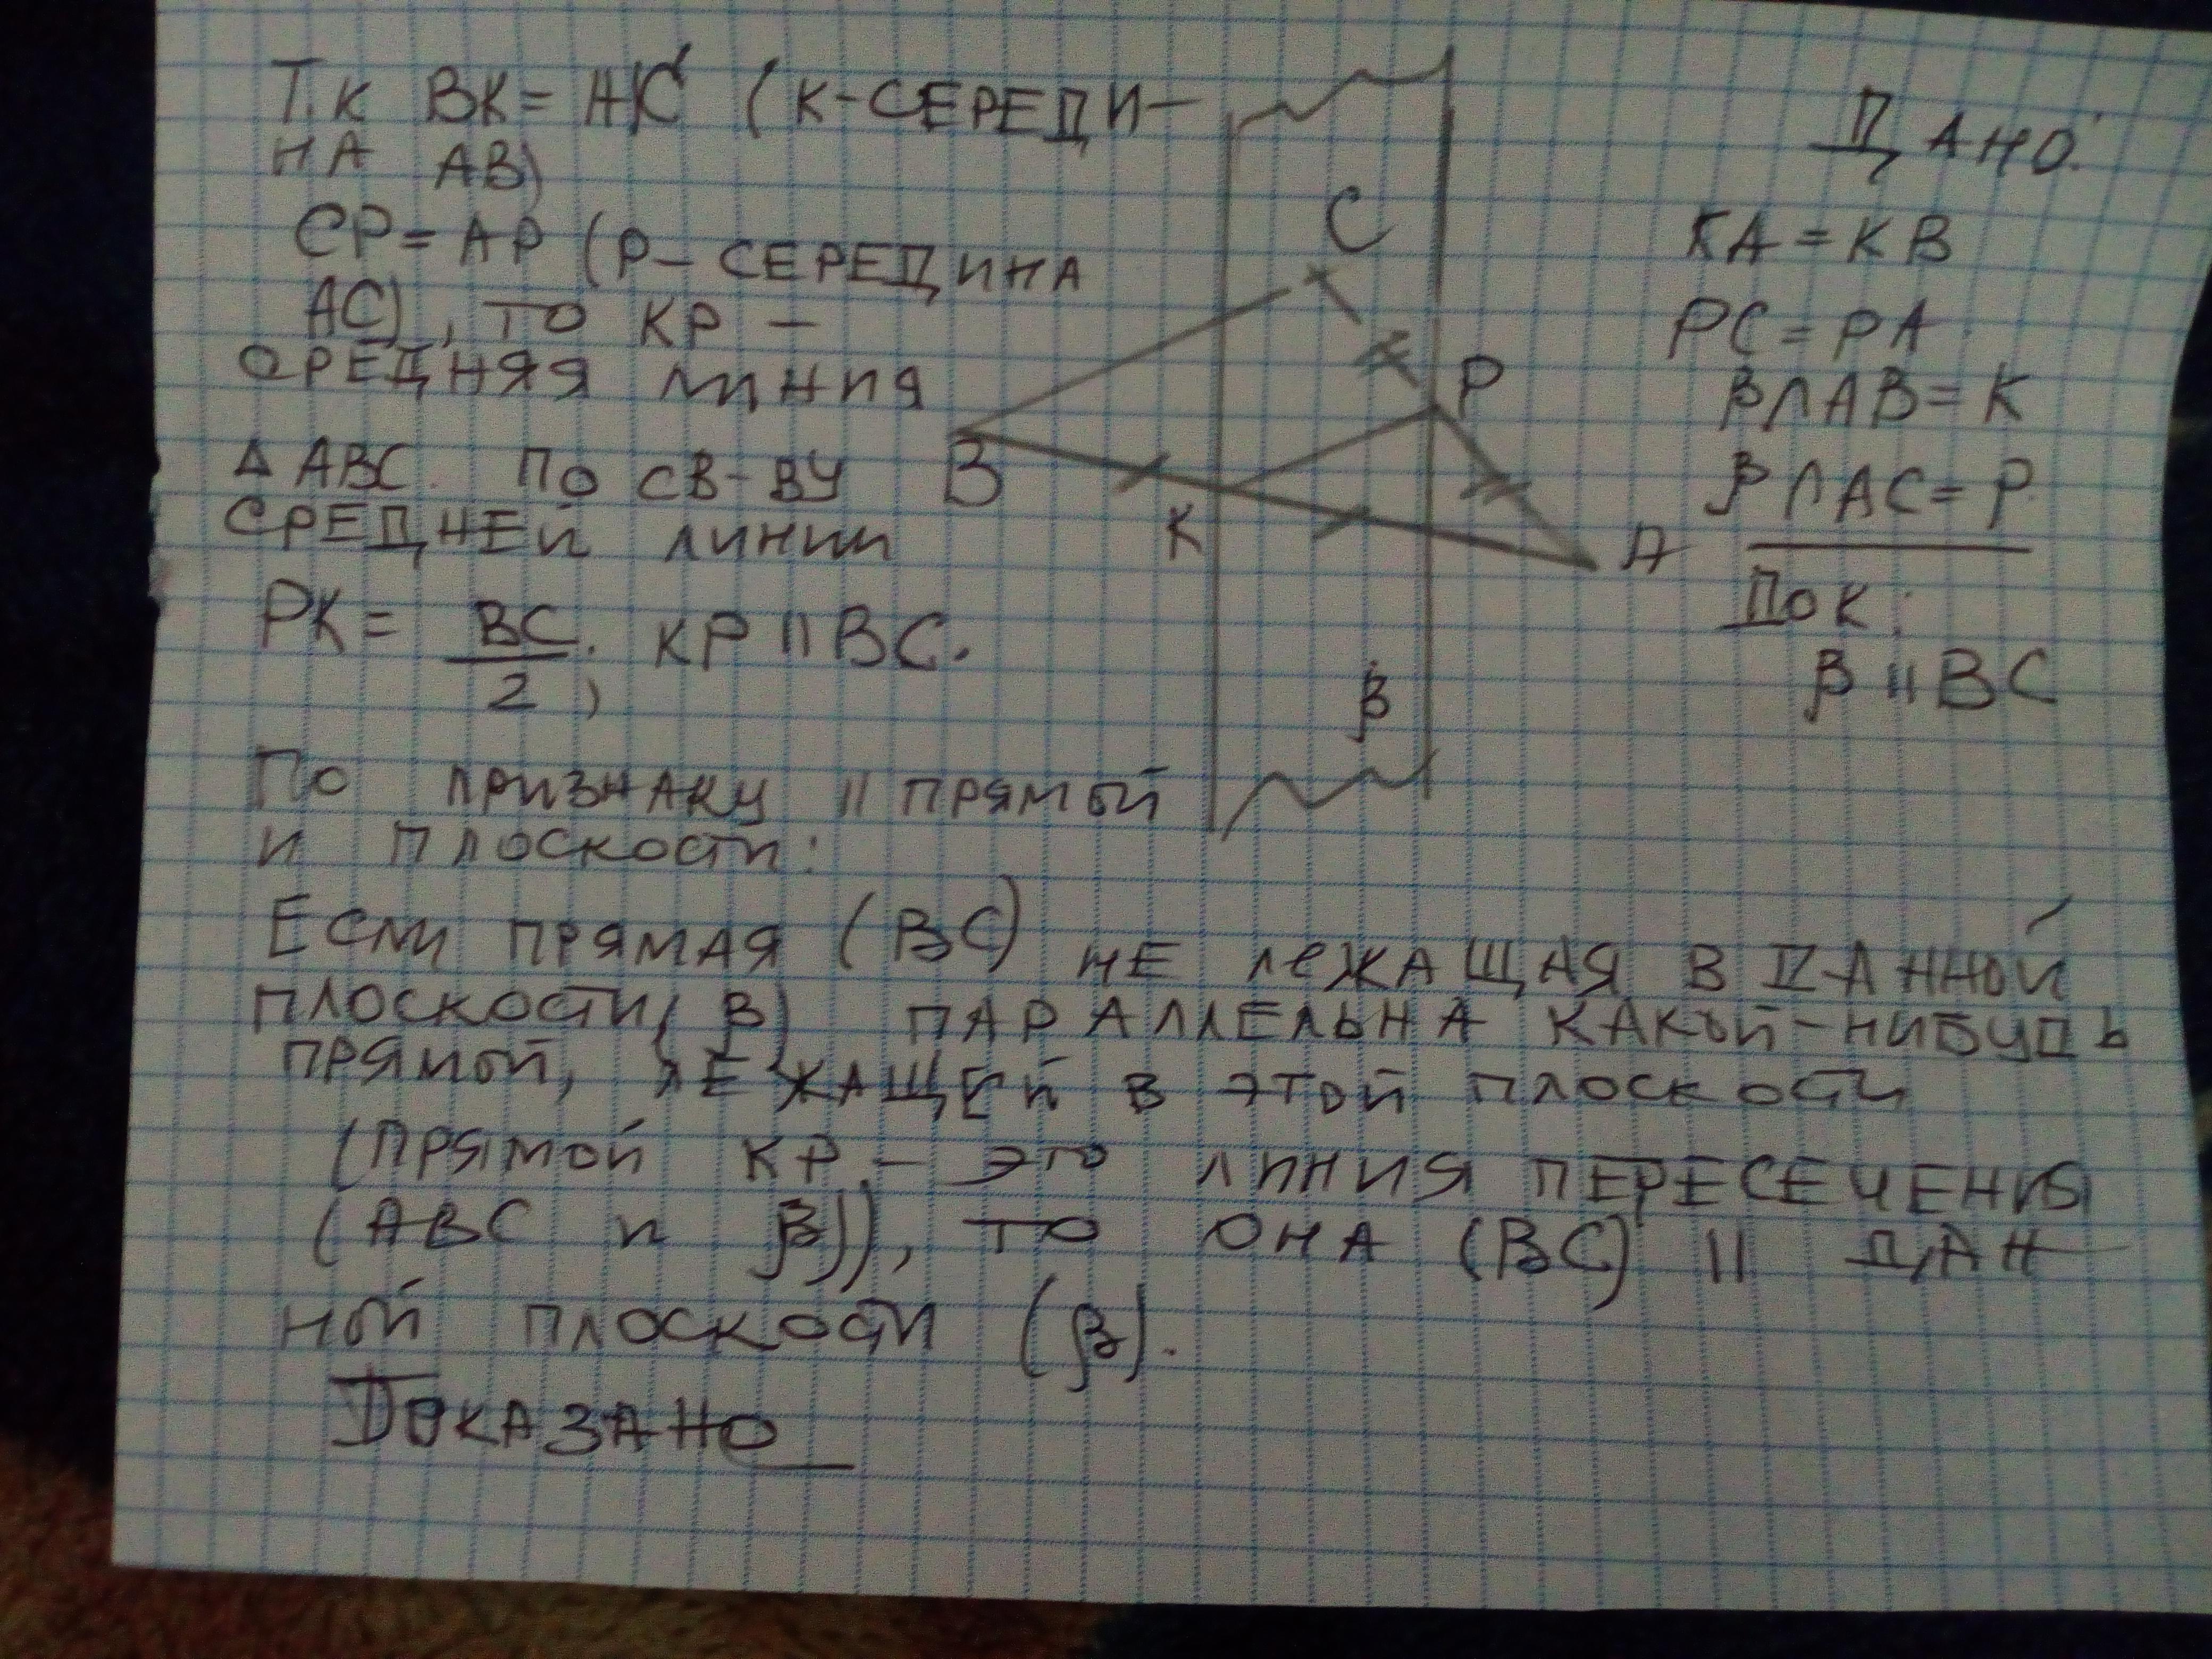 Т.К ВК= АК (К-СЕРЕДИ-
НА АВ)
СР= АР (Р- СЕРЕДИНА
АС), ТО КР -
СРЕДНЯЯ ЛИНИЯ
Δ АВС. ПО СВ-ВУ
СРЕДНЕЙ ЛИНИИ
РК= ВС/2; КР || ВС.
С
Р
В
К
А
β
ДАНО:
КА = КВ
РС = РА
β∩АВ= К
β∩АС= Р
Док:
β || ВС
По признаку || прямой
и плоскости:
Если прямая (ВС) не лежащая в данной
плоскости (β) параллельна какой-нибудь
прямой, лежащей в этой плоскости
(прямой КР - это линия пересечения
(АВС и β)), то она (ВС) || дан
ной плоскости (β).
Доказано